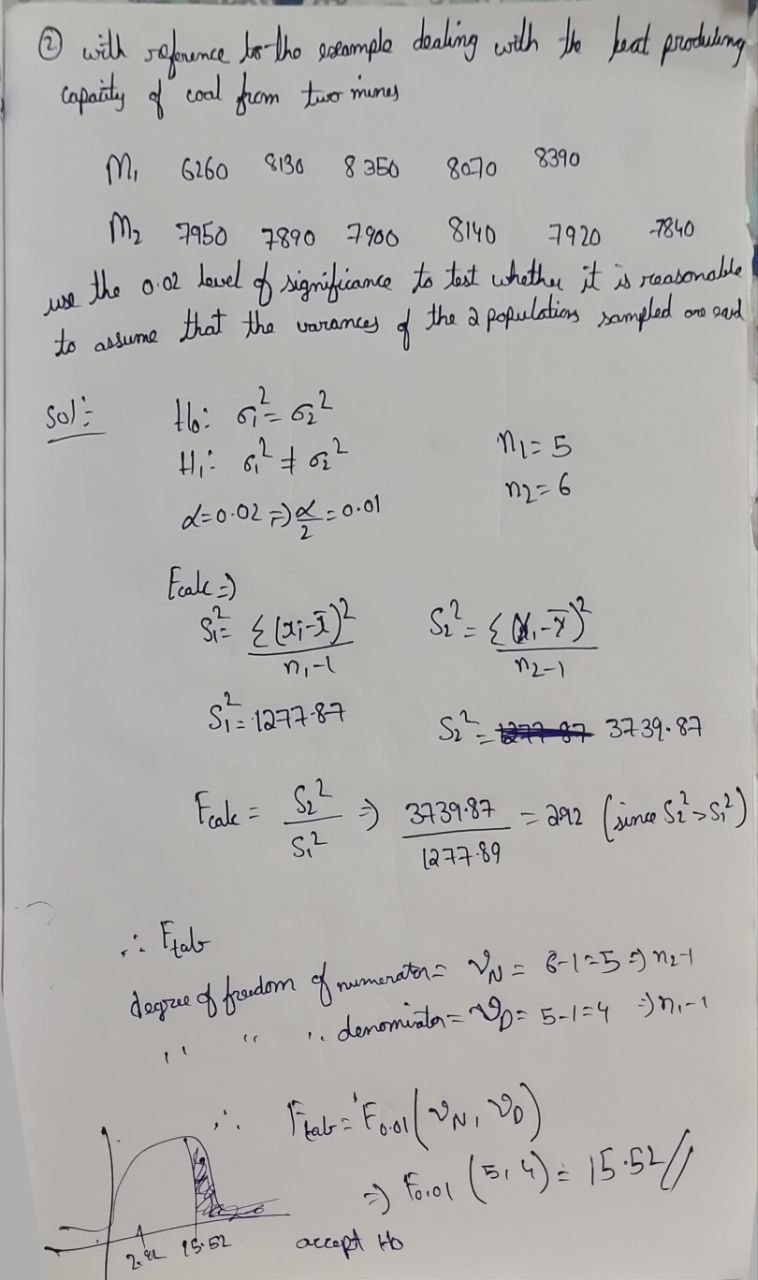 ② with reference to the example dealing with the heat producing
capacity of coal from two mines
M₁ 6260 8130 8350 8070 8390
M₂ 7950 7890 7900 8140 7920 7840
use the 0.02 level of significance to test whether it is reasonable
to assume that the varances of the 2 populations sampled are
Sol:-
H₀: σ₁² = σ₂²
H₁: σ₁² ≠ σ₂²
n₁ = 5
n₂ = 6
α = 0.02 ⇒ α/2 = 0.01
Fcalc ⇒
S₁² = Σ(xᵢ-x̄)²/n₁-1 S₂² = Σ(xᵢ-x̄)²/n₂-1
S₁² = 1277.87 S₂² = 3739.87
Fcalc = S₂²/S₁² ⇒ 3739.87/1277.89 = 292 (since S₂² > S₁²)
∴ Ftab
degree of freedom of numerator = ν_N = 6-1=5 ⇒ n₂-1
'' '' '' denominator = ν_D = 5-1=4 ⇒ n₁-1
∴ Ftab = F₀.₀₁(ν_N, ν_D)
⇒ F₀.₀₁ (5,4) = 15.52//
2.92 15.52 accept H₀